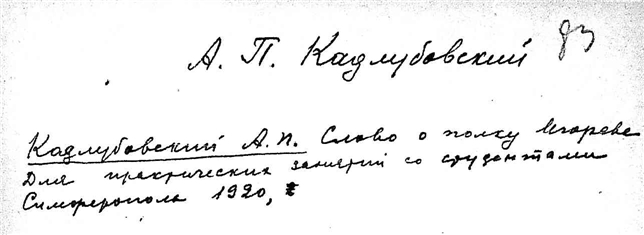 83
А. П. Кадлубовский
Кадлубовский А.П. Слово о полку Игореве
Для практических занятий со студентами
Симферополь 1920,